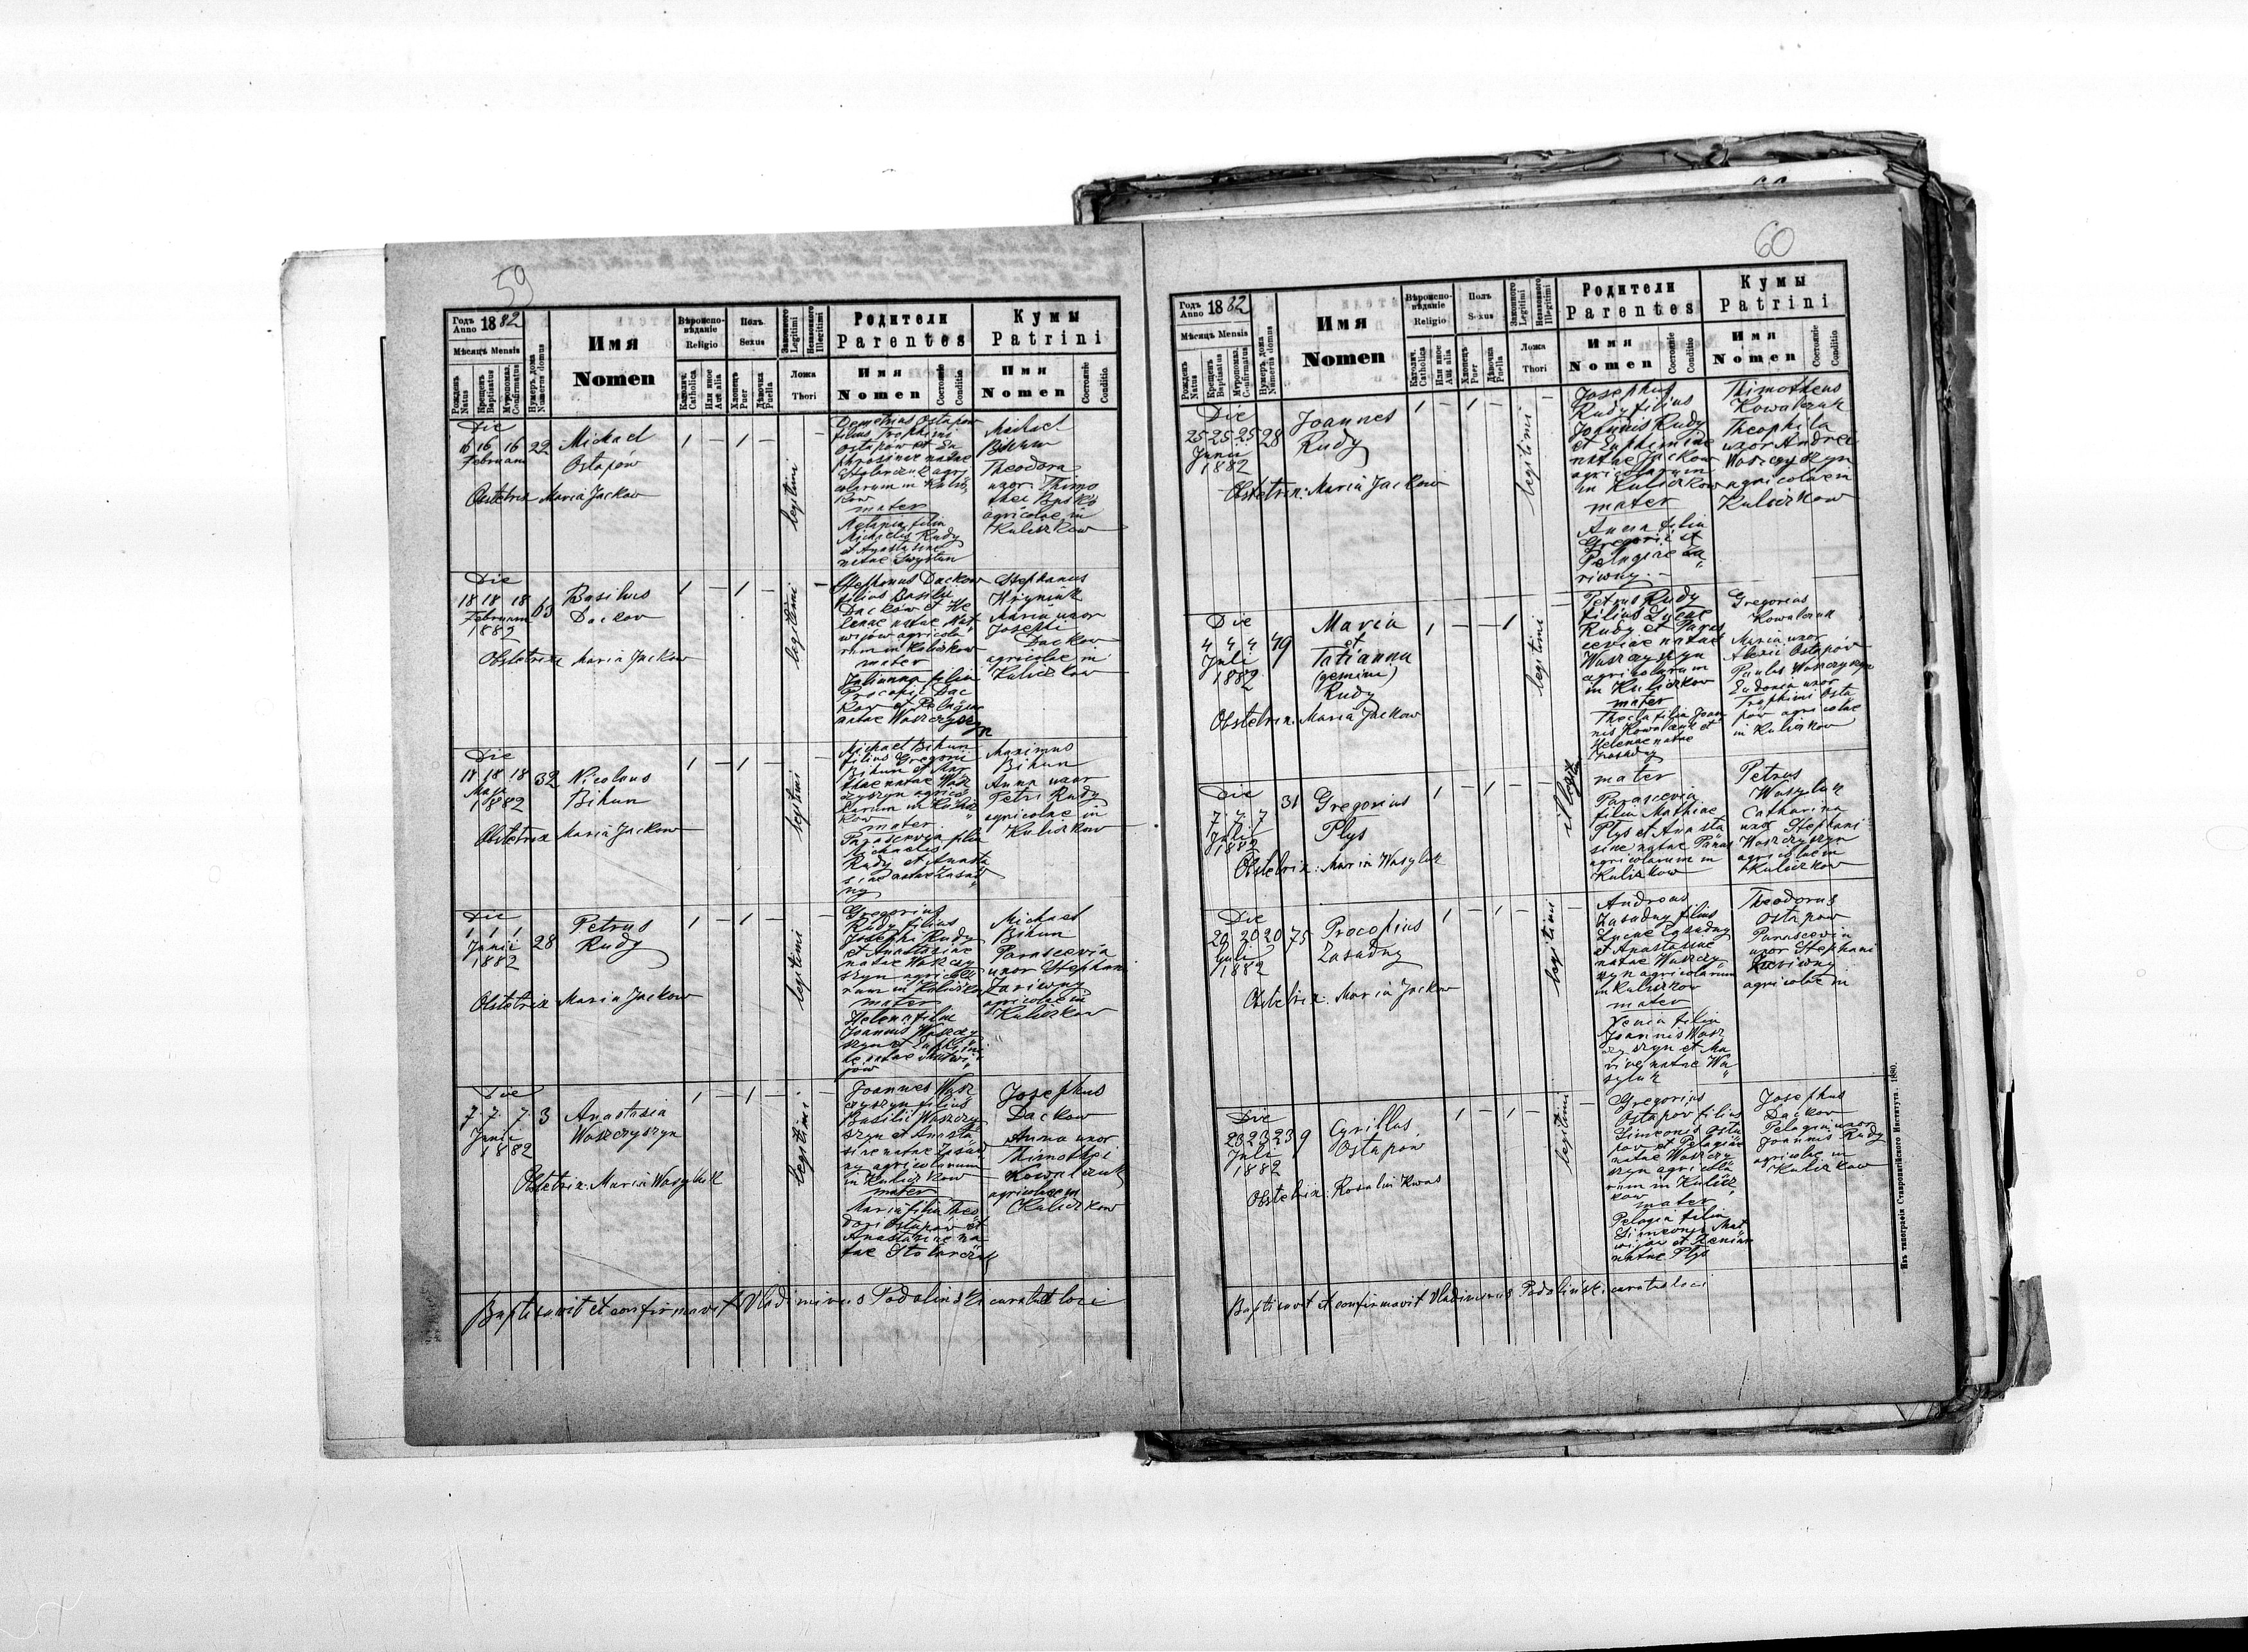 59
Годъ Anno 1882
Мѣсяцъ Mensis
Рожденъ Natus
Крещенъ Baptisatus
Муропомаз. Confirmatus
Нумеръ дома Numerus domus
Имя
Nomen
Вѣроиспо-
вѣданіе
Religio
Католич. Catholica
Или иное Aut alia
Полъ
Sexus
Хлопець Puer
Дѣвочка Puella
Законного Legitimi
Незаконного Illegitimi
Ложа
Thori
Родители
Parentes
Имя
Nomen
Состояніе
Conditio
Кумы
Patrini
Имя
Nomen
Состояніе
Conditio
Die
16 16 16 22
Februarii
Michael
Ostapów
1 - 1 -
legitimi
Obstetrix Maria Jackow
Demetrius Ostapow
filius Trophimi
Ostapow et Eu
phrosinae natae
Stolarczuk agri
colarum in Kulicz
kow
mater
filia
Michaelis Rudy
et Anastasiae
natae
Michael
Bihun
Theodora
uxor Thimo
thei
agricolae in
Kuliczkow
Die
18 18 18 63
Februarii
1882
Basilius
Dackow
1 - 1 -
legitimi
Obstetrix Maria Jackow
Stephanus Dackow
filius Basilii
Dackow et He
lenae natae Mat
wijów agricola
rum in Kuliczkow
mater
Julianna filia
Procopii Dac
kow et Pelagiae
natae Waszczyszyn
Stephanus
Hryniuk
Maria uxor
Josephi
Dackow
agricolae in
Kuliczkow
Die
18 18 18 32
Maja
1882
Nicolaus
Bihun
1 - 1 -
legitimi
Obstetrix Maria Jackow
Michael Bihun
filius Gregorii
Bihun et Mar
thae natae Wasz
czyszyn agrico
larum in Kulicz
kow
mater
Parascevia filia
Michaelis
Rudy et Anasta
siae natae Zasad
ny
Maximus
Bihun
Anna uxor
Petri Rudy
agricolae in
Kuliczkow
Die
1 1 1 28
Junii
1882
Petrus
Rudy
1 - 1 -
legitimi
Obstetrix Maria Jackow
Gregorius
Rudy filius
Josephi Rudy
et Anastasiae
natae Waszczy
szyn agricola
rum in Kuliczkow
mater
Helena filia
Joannis Waszczy
szyn et Euphimi
ae natae Matwi
jow
Michael
Bihun
Parascevia
uxor Stephani
Lariwny
agricolae in
Kuliczkow
Die
7. 7. 7. 3
Junii
1882
Anastasia
Waszczyszyn
1 - 1 -
legitimi
Obstetrix: Maria Wasyluk
Joannes Wasz
czyszyn filius
Basilii Waszczy
szyn et Anasta
siae natae Zasad
ny agricolarum
in Kuliczkow
mater
Maria filia Theo
dori Ostapów et
Anastasiae na
tae Stolarczuk
Josephus
Dackow
Anna uxor
Thimothei
Kowalczuk
agricolae in
Kuliczkow
Baptisavit et confirmavit Vladimirus Podolinski curatus loci
60
Годъ Anno 1882
Мѣсяцъ Mensis
Рожденъ Natus
Крещенъ Baptisatus
Муропомаз. Confirmatus
Нумеръ дома Numerus domus
Имя
Nomen
Вѣроиспо-
вѣданіе
Religio
Католич. Catholica
Или иное Aut alia
Полъ
Sexus
Хлопець Puer
Дѣвочка Puella
Законного Legitimi
Незаконного Illegitimi
Ложа
Thori
Родители
Parentes
Имя
Nomen
Состояніе
Conditio
Кумы
Patrini
Имя
Nomen
Состояніе
Conditio
Die
25 25 25 28
Junii
1882
Joannes
Rudy
1 - 1 -
legitimi
Obstetrix: Maria Jackow
Josephus
Rudy filius
Joannis Rudy
et Euphimiae
natae Jackow
agricolarum
in Kuliczkow
mater
Anna filia
Gregorii et
Pelagiae La
riwny.
Thimotheus
Kowalczuk
Theophila
uxor Andrei
Waszczyszyn
agricolae in
Kuliczkow
Die
4 4 4 49
Juli
1882
Maria
et
Tatianna
(gemini)
Rudy
1 - - 1
legitimi
Obstetrix: Maria Jackow
Petrus Rudy
filius Lucae
Rudy et Paras
ceviae natae
Waszczyszyn
agricolarum
in Kuliczkow
mater
Thecla filia Joan
nis Kowalczuk et
Helenae natae
Zasadny
Gregorius
Kowalczuk
Maria uxor
Alexii Ostapów
Paulus Waszczyszyn
Eudonia uxor
Trophimi Osta
pów agricolae
in Kuliczkow
Die
7. 7. 7 31
Juli
1882
Gregorius
Plys
1 - 1 -
illegitimi
Obstetrix: Maria Wasyluk
mater
Parascevia
filia Mathiae
Plys et Anasta
siae natae Panas
agricolarum in
Kuliczkow
Petrus
Wasyluk
Catharina
uxor Stephani
Waszczyszyn
agricolae in
Kuliczkow
Die
20 20 20 75
Juli
1882
Procopius
Zasadny
1 - 1 -
legitimi
Obstetrix: Maria Jackow
Andreas
Zasadny filius
Lucae Zasadny
et Anastasiae
natae Waszczy
szyn agricolarum
in Kuliczkow
mater
Xenia filia
Joannis Wasz
czyszyn et Ma
riae natae Wa
syluk
Theodorus
Ostapow
Parascevia
uxor Stephani
Lariwny
agricolae in
Die
23 23 23 9
Juli
1882
Cyrillus
Ostapów
1 - 1 -
legitimi
Obstetrix: Rosalia Kwas
Gregorius
Ostapow filius
Simeonis Osta
pow et Pelagiae
natae Waszczy
szyn agricola
rum in Kulicz
kow
mater
Pelagia filia
Simeonis Mat
wijow et Xeniae
natae Plys
Josephus
Dackow
Pelagia uxor
Joannis Rudy
agricolae in
Kuliczkow
Baptisavit et confirmavit Vladimirus Podoliński curatus loci
Изъ типографіи Ставропигійского Института. 1880.